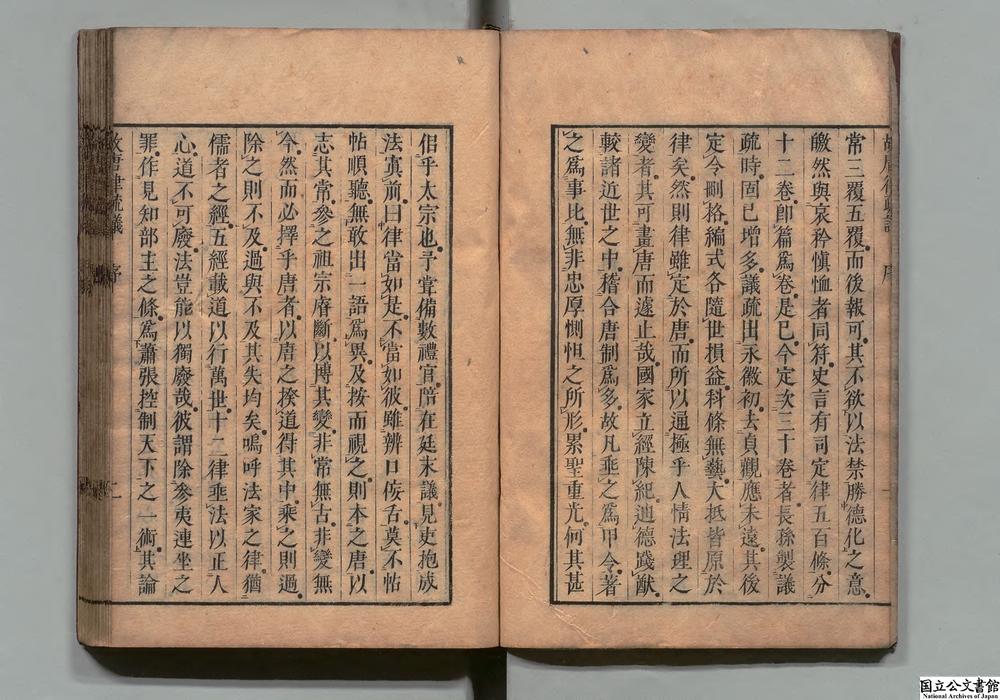 常三覆五覆而後報可其不欲以法禁勝德化之意
皦然與哀矜愼恤者同符史言有司定律五百條分
十二卷卽篇爲卷是已今定次三十卷者長孫製議
疏時固已增多議疏出永徽初去貞觀應未遠其後
定令刪格編式各隨世損益科條無藝大抵皆原於
律矣然則律雖定於唐而所以通極乎人情法理之
變者其可畫唐而遽止哉國家立經陳紀迪德踐猷
較諸近世之中稽合唐制爲多故凡垂之爲甲令著
之爲事比無非忠厚惻怛之所形累聖重光何其甚
侣乎太宗也予甞備數禮官陪在廷末議見吏抱成
法寘前曰律當如是不當如彼雖辨口佞舌莫不帖
帖順聽無敢出一語爲異及按而視之則本之唐以
志其常參之祖宗睿斷以博其變非常無古非變無
今然而必擇乎唐者以唐之揆道得其中乘之則過
除之則不及過與不及其失均矣嗚呼法家之律猶
儒者之經五經載道以行萬世十二律垂法以正人
心道不可廢法豈能以獨廢哉彼謂除參夷連坐之
罪作見知部主之條爲蕭張控制天下之一術其論
故唐律疏議 序 二
国立公文書館
National Archives of Japan